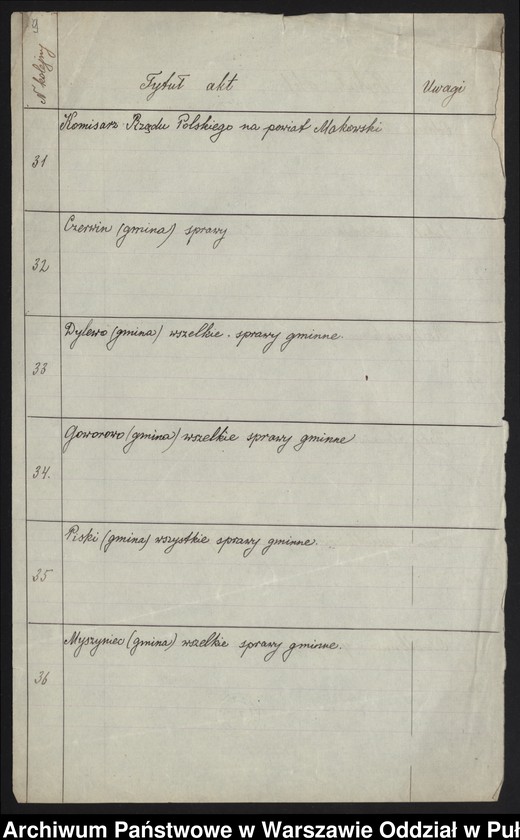 N kolejny
Tytuł akt
Uwagi
Komisarz Rządu Polskiego na powiat Makowski
31
Czerwin (gmina) sprawy
32
Dylewo (gmina) wszelkie sprawy gminne.
33
Goworowo (gmina) wszelkie sprawy gminne
34.
Piski (gmina) wszystkie sprawy gminne.
35
Myszyniec (gmina) wszelkie sprawy gminne.
36
Archiwum Państwowe w Warszawie Oddział w Puł